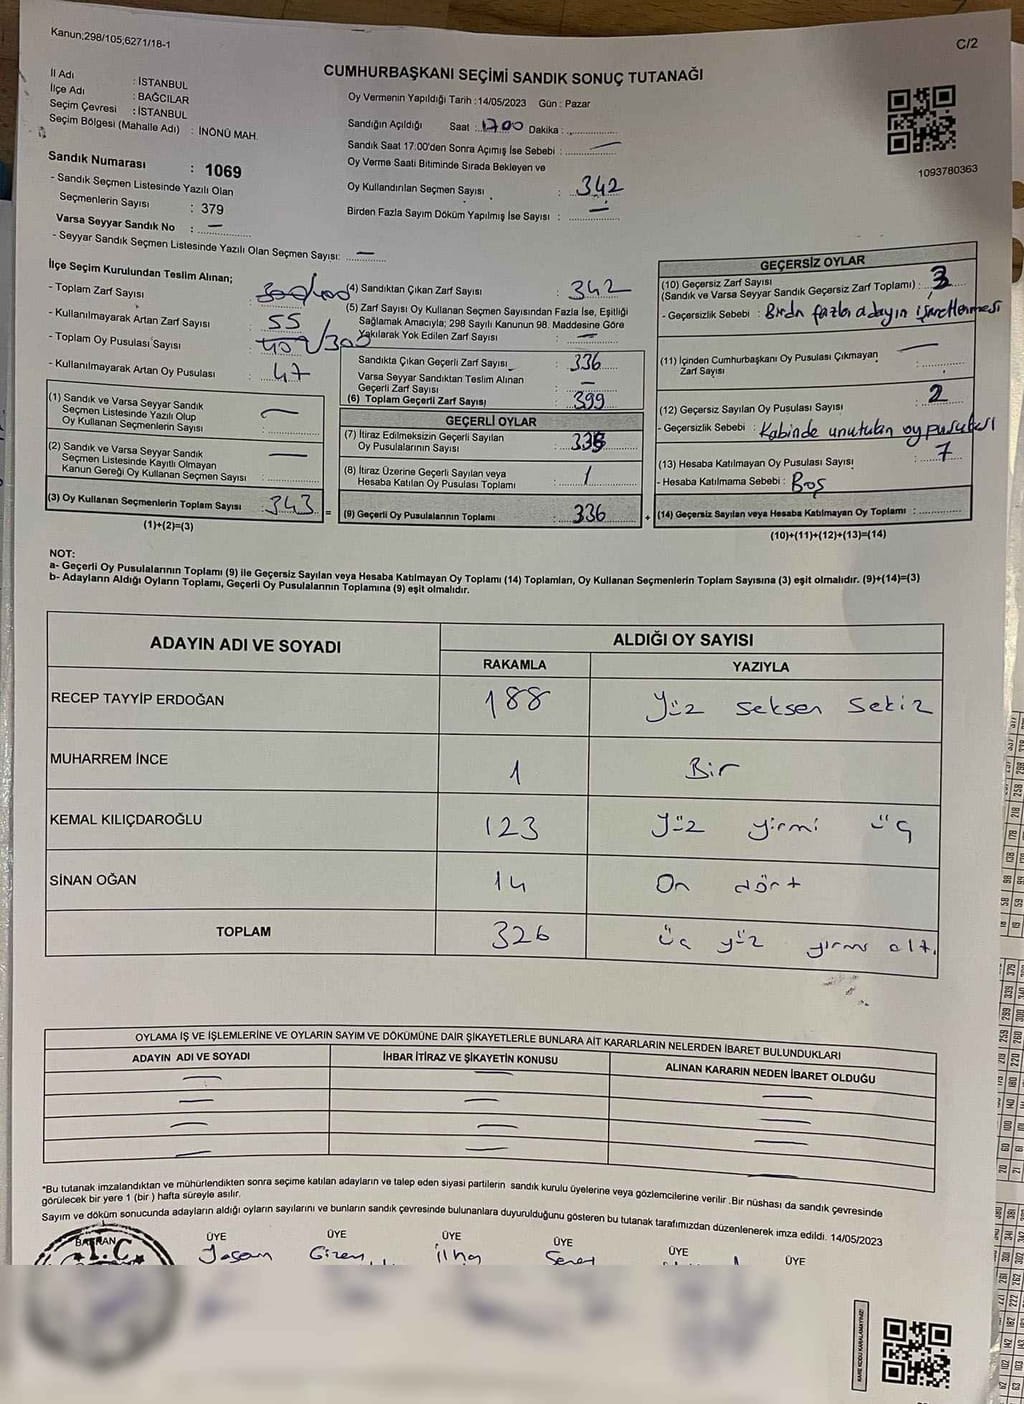 Kanun;298/105;6271/18-1
C/2
CUMHURBAŞKANI SEÇİMİ SANDIK SONUÇ TUTANAĞI
İl Adı : İSTANBUL
İlçe Adı : BAĞCILAR
Seçim Çevresi : İSTANBUL
Seçim Bölgesi (Mahalle Adı) : İNÖNÜ MAH.
Sandık Numarası : 1069
- Sandık Seçmen Listesinde Yazılı Olan
Seçmenlerin Sayısı : 379
Varsa Seyyar Sandık No : —
- Seyyar Sandık Seçmen Listesinde Yazılı Olan Seçmen Sayısı: —
Oy Vermenin Yapıldığı Tarih :14/05/2023 Gün : Pazar
Sandığın Açıldığı Saat :1700 Dakika :
Sandık Saat 17:00'den Sonra Açımış İse Sebebi : —
Oy Verme Saati Bitiminde Sırada Bekleyen ve
Oy Kullandırılan Seçmen Sayısı : 342
Birden Fazla Sayım Döküm Yapılmış İse Sayısı : —
1093780363
İlçe Seçim Kurulundan Teslim Alınan;
- Toplam Zarf Sayısı :
- Kullanılmayarak Artan Zarf Sayısı : 55
- Toplam Oy Pusulası Sayısı :
- Kullanılmayarak Artan Oy Pusulası : 47
(1) Sandık ve Varsa Seyyar Sandık
Seçmen Listesinde Yazılı Olup
Oy Kullanan Seçmenlerin Sayısı : —
(2) Sandık ve Varsa Seyyar Sandık
Seçmen Listesinde Kayıtlı Olmayan
Kanun Gereği Oy Kullanan Seçmen Sayısı : —
(3) Oy Kullanan Seçmenlerin Toplam Sayısı : 343 =
(1)+(2)=(3)
(4) Sandıktan Çıkan Zarf Sayısı : 342
(5) Zarf Sayısı Oy Kullanan Seçmen Sayısından Fazla İse, Eşitliği
Sağlamak Amacıyla; 298 Sayılı Kanunun 98. Maddesine Göre
Yakılarak Yok Edilen Zarf Sayısı : —
Sandıkta Çıkan Geçerli Zarf Sayısı : 336
Varsa Seyyar Sandıktan Teslim Alınan
Geçerli Zarf Sayısı : —
(6) Toplam Geçerli Zarf Sayısı : 399
GEÇERLİ OYLAR
(7) İtiraz Edilmeksizin Geçerli Sayılan
Oy Pusulalarının Sayısı : 335
(8) İtiraz Üzerine Geçerli Sayılan veya
Hesaba Katılan Oy Pusulası Toplamı : 1
(9) Geçerli Oy Pusulalarının Toplamı : 336 +
GEÇERSİZ OYLAR
(10) Geçersiz Zarf Sayısı
(Sandık ve Varsa Seyyar Sandık Geçersiz Zarf Toplamı) : 3
- Geçersizlik Sebebi : Birdn fazla adayın işaretlenmesi
(11) İçinden Cumhurbaşkanı Oy Pusulası Çıkmayan
Zarf Sayısı : —
(12) Geçersiz Sayılan Oy Pusulası Sayısı : 2
- Geçersizlik Sebebi : Kabinde unutulan oy pusulası
(13) Hesaba Katılmayan Oy Pusulası Sayısı : 7
- Hesaba Katılmama Sebebi : Boş
(14) Geçersiz Sayılan veya Hesaba Katılmayan Oy Toplamı :
(10)+(11)+(12)+(13)=(14)
NOT:
a- Geçerli Oy Pusulalarının Toplamı (9) ile Geçersiz Sayılan veya Hesaba Katılmayan Oy Toplamı (14) Toplamları, Oy Kullanan Seçmenlerin Toplam Sayısına (3) eşit olmalıdır. (9)+(14)=(3)
b- Adayların Aldığı Oyların Toplamı, Geçerli Oy Pusulalarının Toplamına (9) eşit olmalıdır.
ADAYIN ADI VE SOYADI ALDIĞI OY SAYISI
RAKAMLA YAZIYLA
RECEP TAYYİP ERDOĞAN 188 Yüz seksen sekiz
MUHARREM İNCE 1 Bir
KEMAL KILIÇDAROĞLU 123 Yüz yirmi üç
SİNAN OĞAN 14 On dört
TOPLAM 326 üç yüz yirmi altı
OYLAMA İŞ VE İŞLEMLERİNE VE OYLARIN SAYIM VE DÖKÜMÜNE DAİR ŞİKAYETLERLE BUNLARA AİT KARARLARIN NELERDEN İBARET BULUNDUKLARI
ADAYIN ADI VE SOYADI İHBAR İTİRAZ VE ŞİKAYETİN KONUSU ALINAN KARARIN NEDEN İBARET OLDUĞU
*Bu tutanak imzalandıktan ve mühürlendikten sonra seçime katılan adayların ve talep eden siyasi partilerin sandık kurulu üyelerine veya gözlemcilerine verilir .Bir nüshası da sandık çevresinde
görülecek bir yere 1 (bir ) hafta süreyle asılır.
Sayım ve döküm sonucunda adayların aldığı oyların sayılarını ve bunların sandık çevresinde bulunanlara duyurulduğunu gösteren bu tutanak tarafımızdan düzenlenerek imza edildi. 14/05/2023
ÜYE ÜYE ÜYE ÜYE ÜYE ÜYE
T.C.
KARE KODU KARALAMAYINIZ!